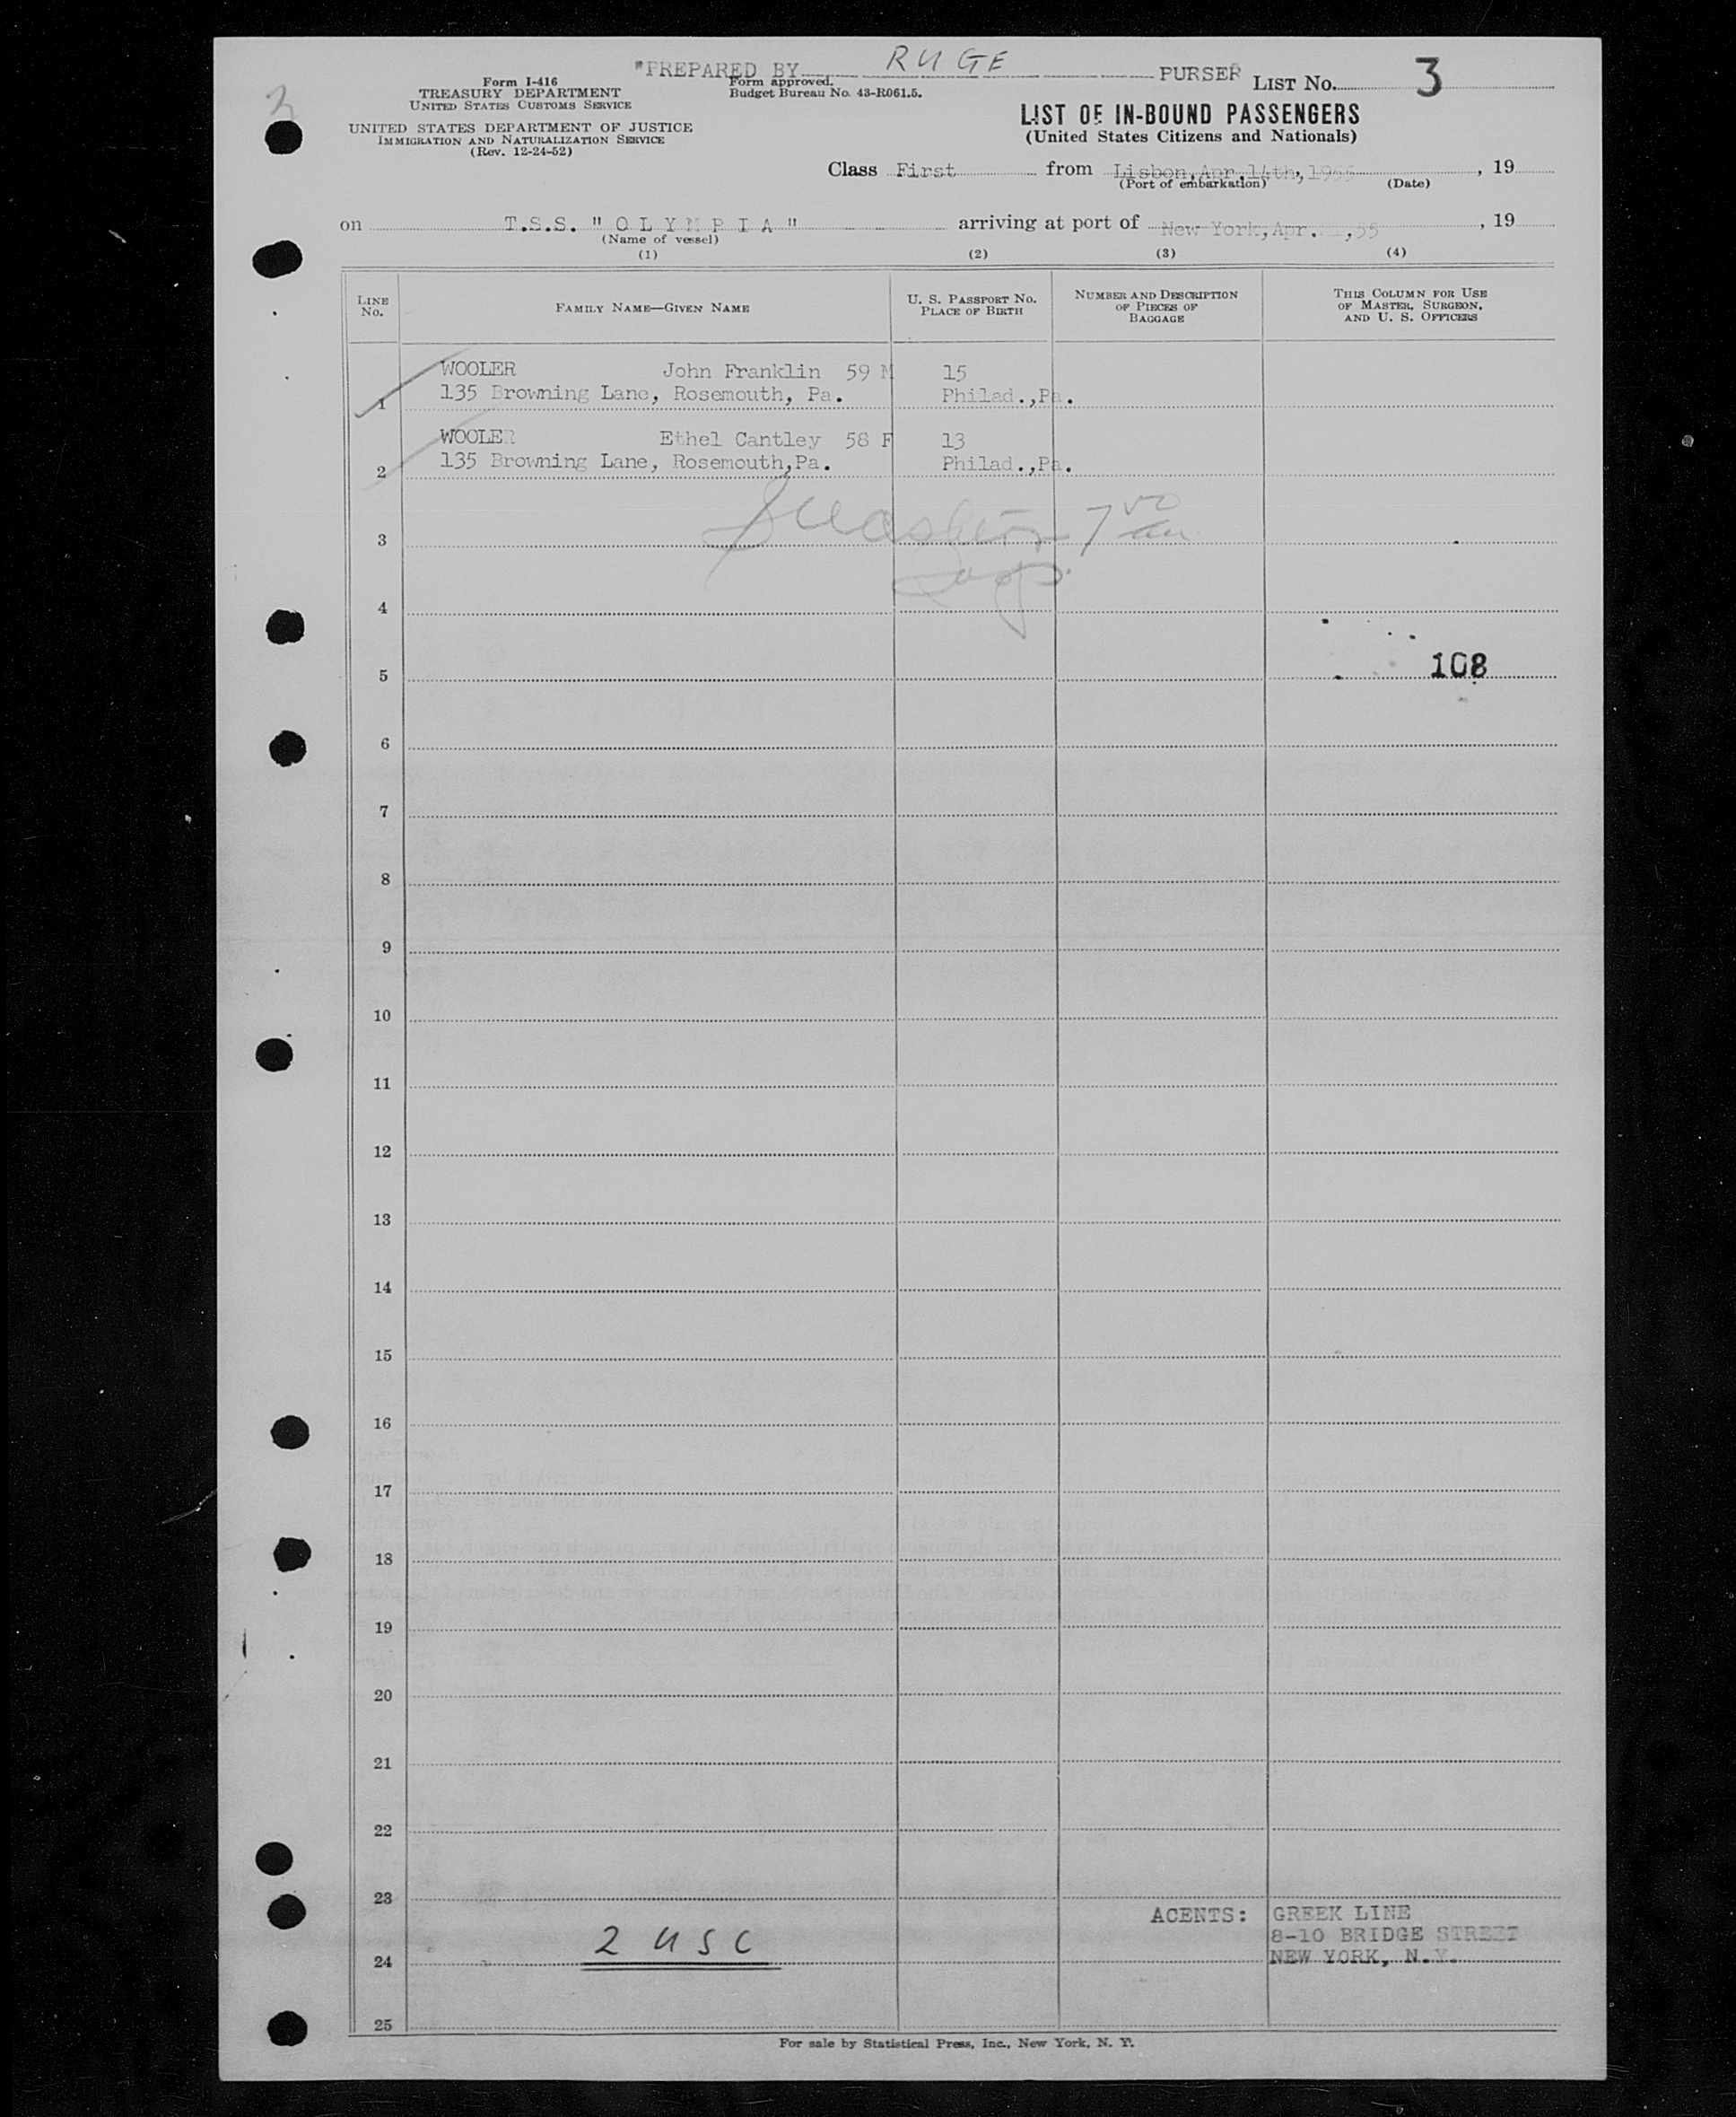 "PREPARED BY RUGE PURSER
Form I-416
TREASURY DEPARTMENT
UNITED STATES CUSTOMS SERVICE
UNITED STATES DEPARTMENT OF JUSTICE
IMMIGRATION AND NATURALIZATION SERVICE
(Rev. 12-24-52)
Form approved.
Budget Bureau No. 43-R061.5.
LIST No. 3
LIST OF IN-BOUND PASSENGERS
(United States Citizens and Nationals)
Class First from Lisbon, Apr.14th, 1955, 19
(Port of embarkation) (Date)
on T.S.S. "OLYMPIA" arriving at port of New York, Apr. ,55, 19
(Name of vessel)
(1) (2) (3) (4)
LINE No. FAMILY NAME—GIVEN NAME U. S. PASSPORT No. PLACE OF BIRTH NUMBER AND DESCRIPTION OF PIECES OF BAGGAGE THIS COLUMN FOR USE OF MASTER, SURGEON, AND U. S. OFFICERS
WOOLER John Franklin 59 M 15
1 135 Browning Lane, Rosemouth, Pa. Philad.,Pa.
WOOLER Ethel Cantley 58 F 13
2 135 Browning Lane, Rosemouth,Pa. Philad.,Pa.
3
4
5 108
6
7
8
9
10
11
12
13
14
15
16
17
18
19
20
21
22
23
ACENTS: GREEK LINE
8-10 BRIDGE STREET
24 2 USC NEW YORK, N.Y.
25
For sale by Statistical Press, Inc., New York, N. Y.